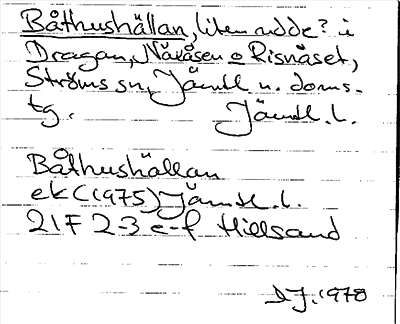 Båthushällan, liten udde? i
Dragan, Nåxåsen o Risnäset,
Ströms sn, Jämtl. n. doms.
tg. Jämtl. l.
Båthushällan
ek C (1975) Jämtl. l.
21F 2-3 e-f Hillsand
D.J. 1978